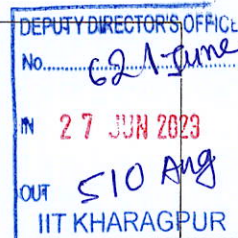 DEPUTY DIRECTOR'S OFFICE
No............ 621 June
IN 27 JUN 2023
OUT 510 Aug
IIT KHARAGPUR